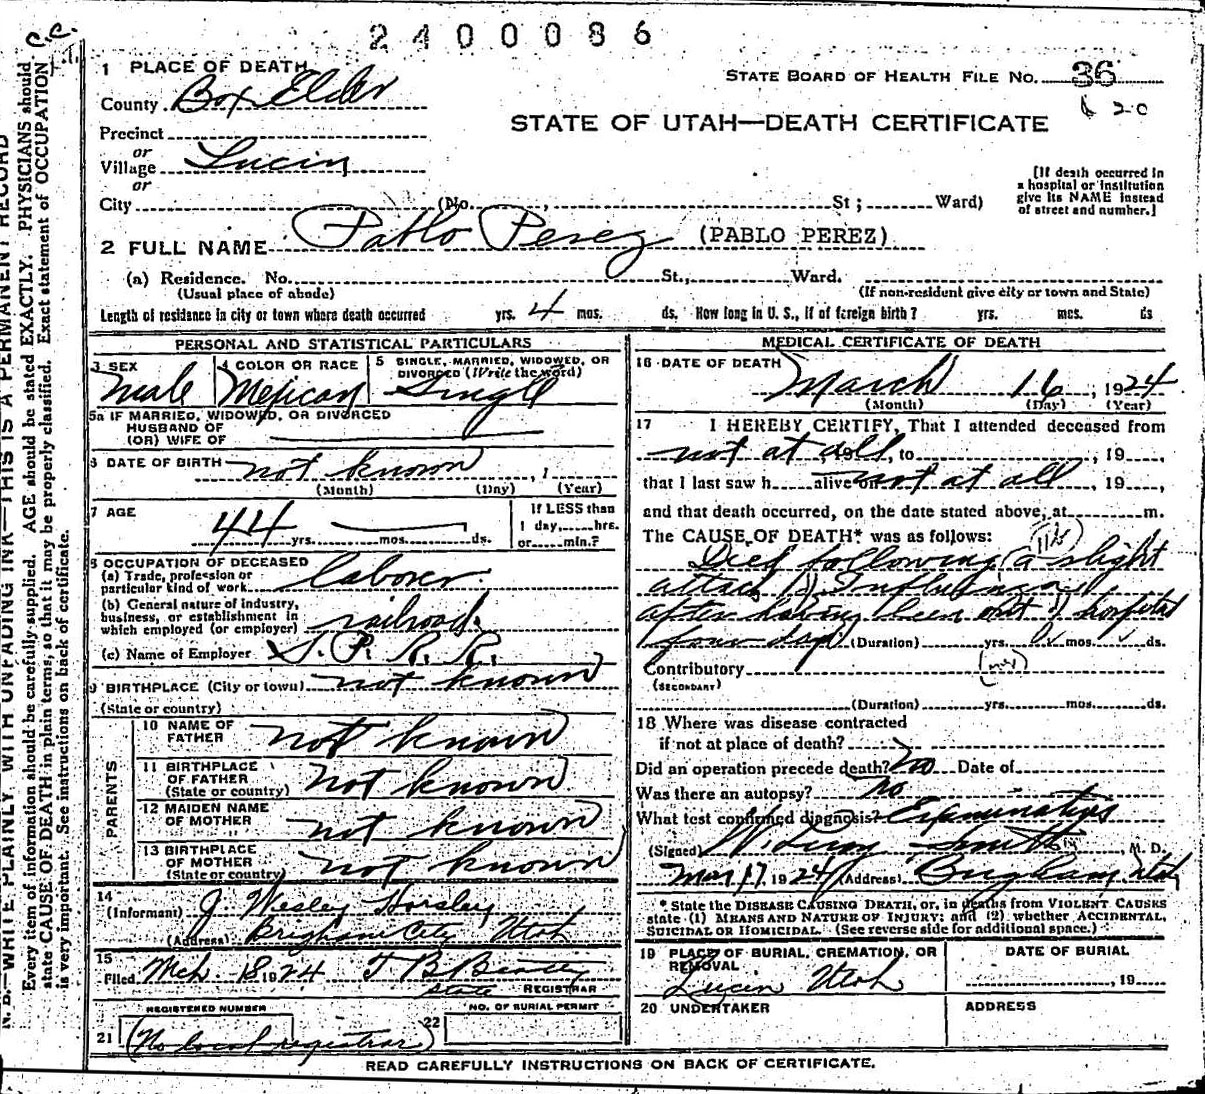 C.C.
2400086
1 PLACE OF DEATH
STATE BOARD OF HEALTH FILE NO. 36
20
County Box Elder
STATE OF UTAH—DEATH CERTIFICATE
Precinct
or
Village Lucin
or
[If death occurred in
a hospital or institution
give its NAME instead
of street and number.]
City (No. , St ; Ward)
2 FULL NAME Pablo Perez (PABLO PEREZ)
(a) Residence. No. St., Ward.
(Usual place of abode) (If non-resident give city or town and State)
Length of residence in city or town where death occurred yrs. 4 mos. ds. How long in U. S., if of foreign birth? yrs. mos. ds
PERSONAL AND STATISTICAL PARTICULARS
3 SEX
male
4 COLOR OR RACE
Mexican
5 SINGLE, MARRIED, WIDOWED, OR
DIVORCED (Write the word)
Single
5a IF MARRIED, WIDOWED, OR DIVORCED
HUSBAND OF
(OR) WIFE OF
6 DATE OF BIRTH not known , 1
(Month) (Day) (Year)
7 AGE
44 yrs. mos. ds.
If LESS than
1 day, hrs.
or min.?
8 OCCUPATION OF DECEASED
(a) Trade, profession or
particular kind of work laborer
(b) General nature of industry,
business, or establishment in
which employed (or employer) railroad
(c) Name of Employer S. P. R. R.
9 BIRTHPLACE (City or town) not known
(State or country)
PARENTS
10 NAME OF
FATHER not known
11 BIRTHPLACE
OF FATHER
(State or country) not known
12 MAIDEN NAME
OF MOTHER not known
13 BIRTHPLACE
OF MOTHER
(State or country) not known
14
(Informant) J Wesley Horsley
(Address) Brigham City Utah
15
Filed Mch. 18 1924 T B Beatty
State REGISTRAR
REGISTERED NUMBER
NO. OF BURIAL PERMIT
21 (No local registrar) 22
MEDICAL CERTIFICATE OF DEATH
16 DATE OF DEATH
March 16, 1924
(Month) (Day) (Year)
17 I HEREBY CERTIFY, That I attended deceased from
not at all, to , 19 ,
that I last saw h alive on not at all, 19 ,
and that death occurred, on the date stated above, at m.
The CAUSE OF DEATH* was as follows:
Died following a slight
attack of Influenza
after having been out of hospital
four days (Duration) yrs. mos. ds.
Contributory
(SECONDARY)
(Duration) yrs. mos. ds.
18 Where was disease contracted
if not at place of death?
Did an operation precede death? no Date of
Was there an autopsy? no
What test confirmed diagnosis? Examination
(Signed) W. Leroy Smith, M. D.
Mar 17 1924 (Address) Brigham, Utah
* State the DISEASE CAUSING DEATH, or, in deaths from VIOLENT CAUSES
state (1) MEANS AND NATURE OF INJURY; and (2) whether ACCIDENTAL,
SUICIDAL OR HOMICIDAL. (See reverse side for additional space.)
19 PLACE OF BURIAL, CREMATION, OR
REMOVAL
Lucin Utah
DATE OF BURIAL
, 19
20 UNDERTAKER
ADDRESS
READ CAREFULLY INSTRUCTIONS ON BACK OF CERTIFICATE.
N. B.—WRITE PLAINLY, WITH UNFADING INK—THIS IS A PERMANENT RECORD
Every item of information should be carefully supplied. AGE should be stated EXACTLY. PHYSICIANS should
state CAUSE OF DEATH in plain terms, so that it may be properly classified. Exact statement of OCCUPATION
is very important. See instructions on back of certificate.